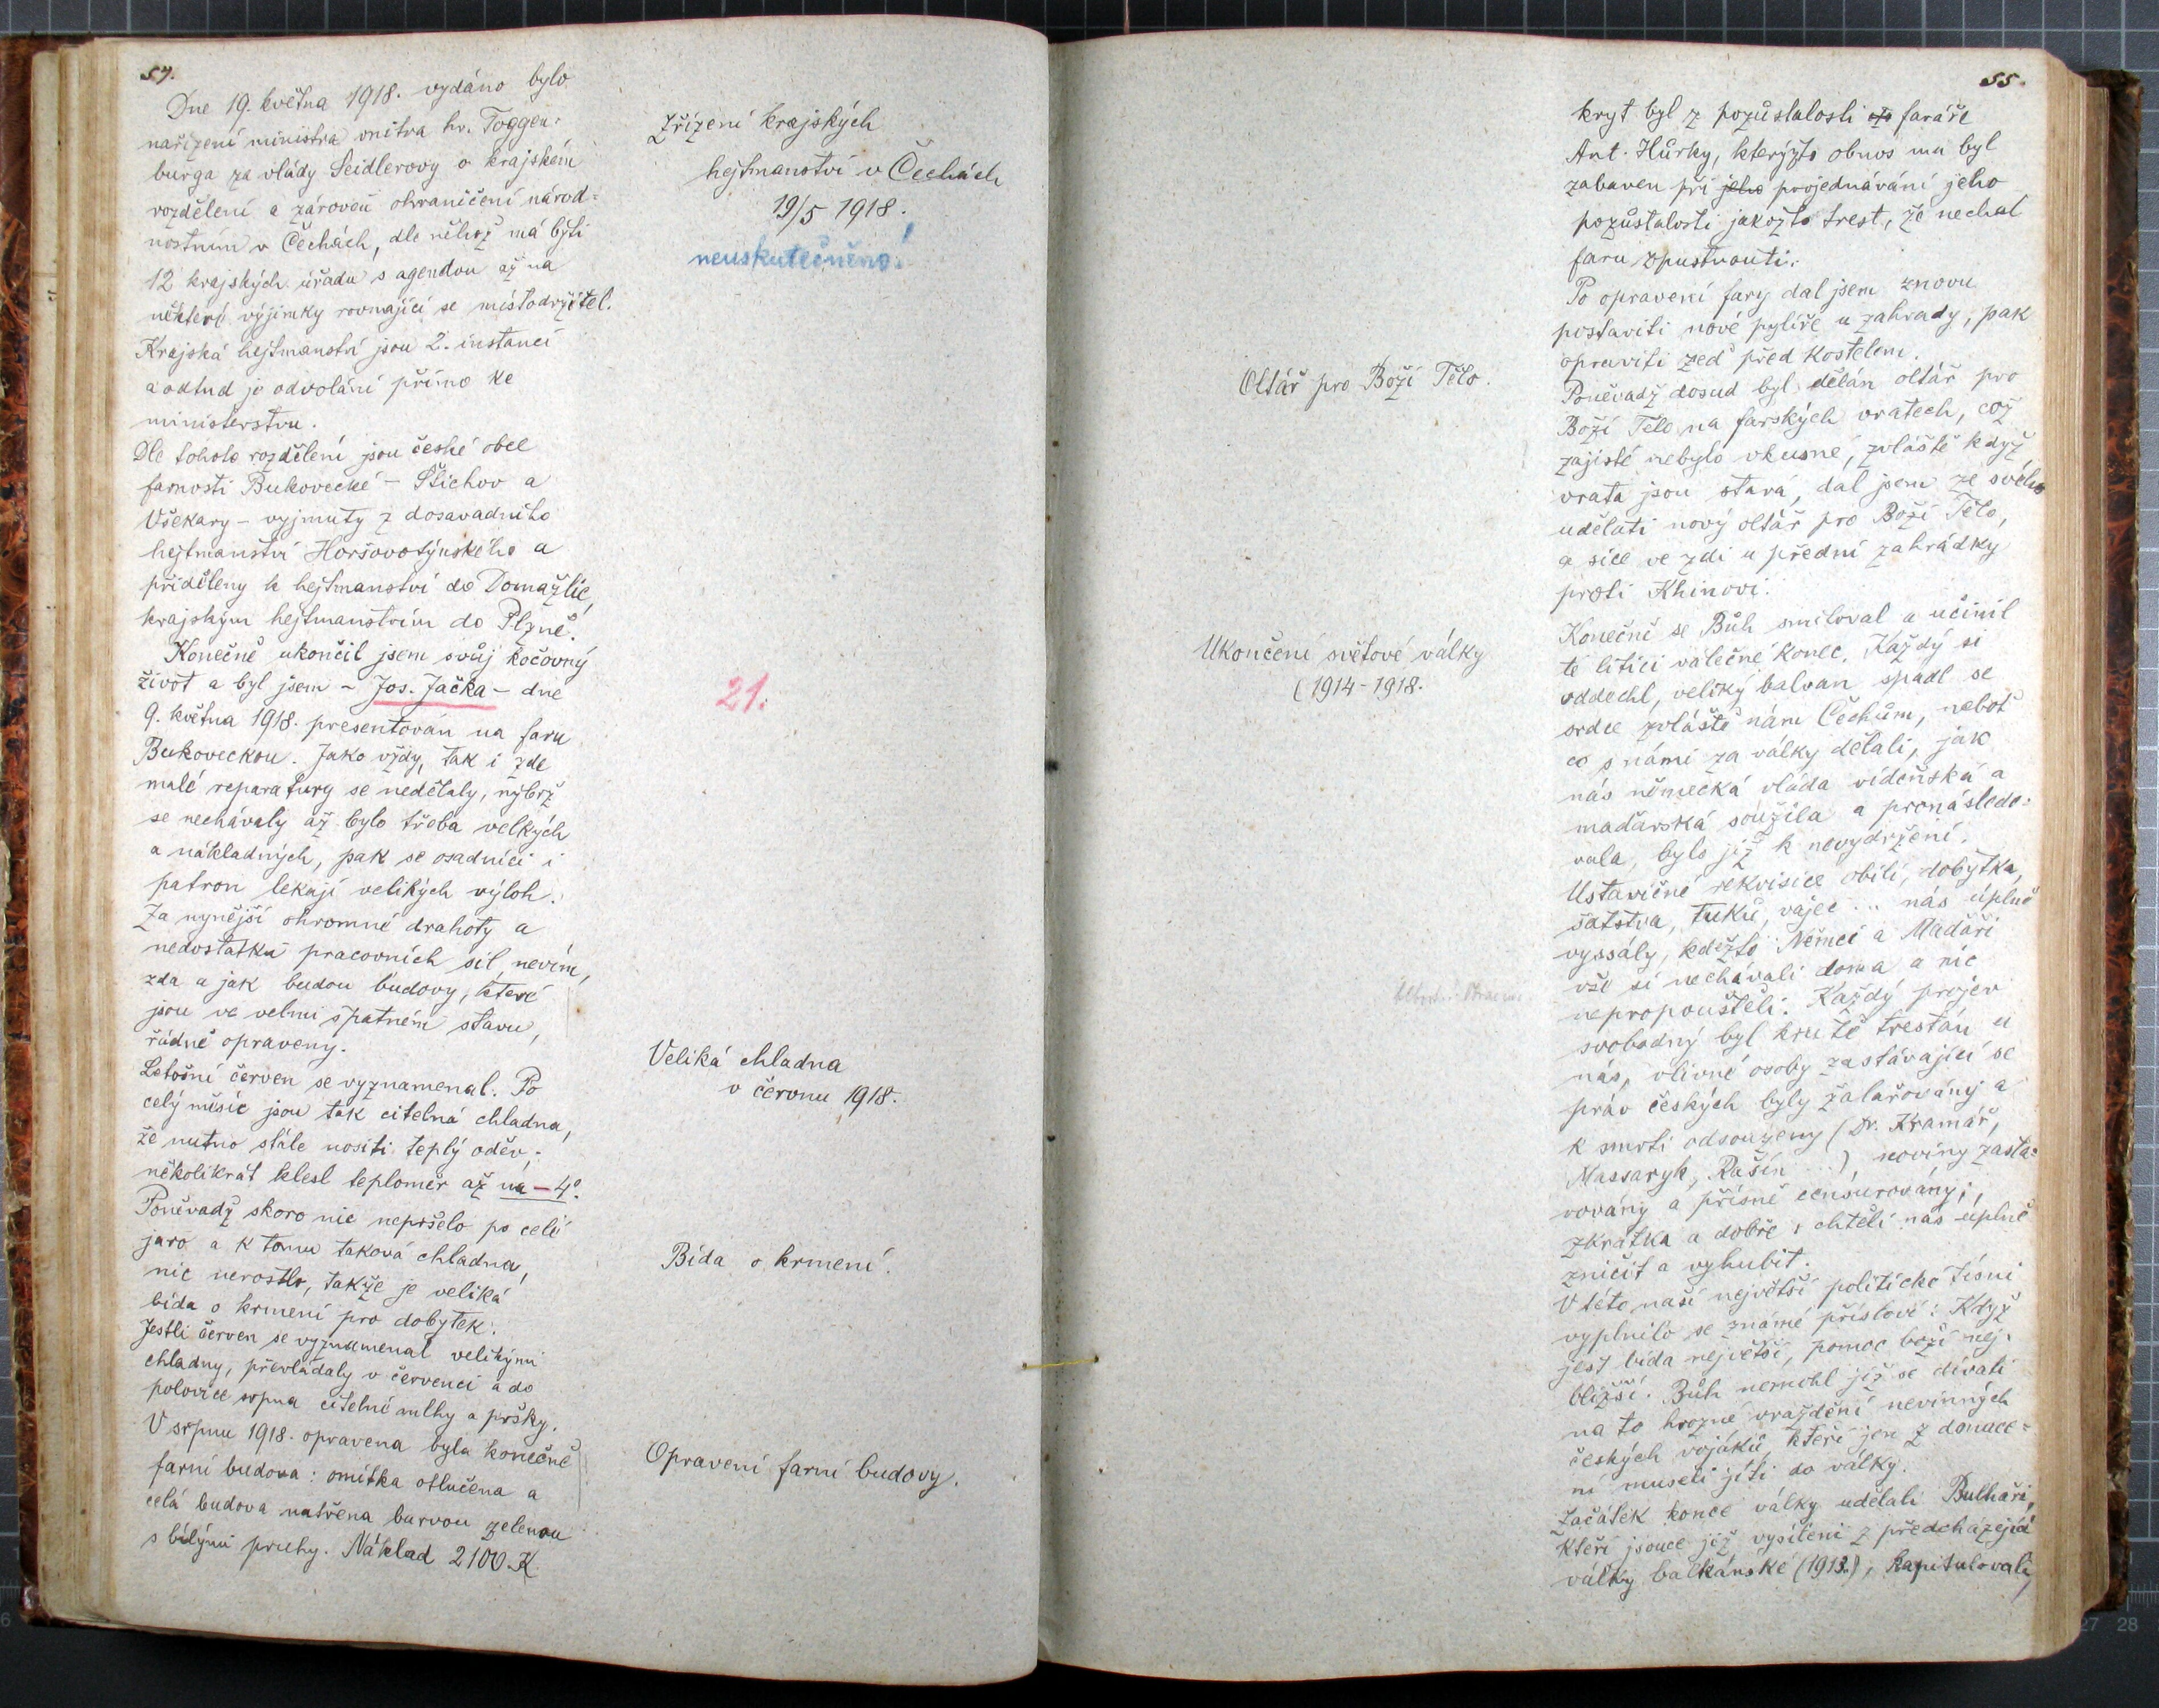 54.
Dne 19. května 1918. vydáno bylo
nařízení ministra vnitra hr. Toggen-
burga za vlády Seidlerovy o krajském
rozdělení a zároveň ohraničení národ=
nostním v Čechách, dle něhož má býti
12 krajských úřadu s agendou až na
některé výjimky rovnající se místodržitel.
Krajská hejtmanství jsou 2. instancí
a odtud jo odvolání přímo ke
ministerstvu.
Dle tohoto rozdělení jsou české obce
farnosti Bukovecké – Štichov a
Všekary – vyjmuty z dosavadního
hejtmanství Horšovotýnského a
přiděleny k hejtmanství do Domažlic,
krajským hejtmanstvím do Plzně.
Konečně ukončil jsem svůj kočovný
život a byl jsem – Jos. Jačka – dne
9. května 1918. presentován na faru
Bukoveckou. Jako vždy, tak i zde
malé reparatury se nedělaly, nýbrž
se nechávaly až bylo třeba velkých
a nákladných, pak se osadníci i
patron lekají velikých výloh.
Za nynější ohromné drahoty a
nedostatku pracovních sil, nevím,
zda a jak budou budovy, které
jsou ve velmi špatném stavu,
řádně opraveny.
Letošní červen se vyznamenal. Po
celý měsíc jsou tak citelná chladna,
že nutno stále nositi teplý oděv;
několikrát klesl teploměr až na –4°.
Poněvadž skoro nic nepršelo po celé
jaro a k tomu taková chladna,
nic nerostlo, takže je veliká
bída o krmení pro dobytek.
Jestli červen se vyznamenal velikými
chladny, převládaly v červenci a do
polovice srpna citelné mlhy a pršky.
V srpnu 1918. opravena byla konečně
farní budova: omítka otlučena a
celá budova natřena barvou zelenou
s bílými pruhy. Náklad 2100 K
Zřízení krajských
hejtmanství v Čechách
19/5 1918.
neuskutečněno!
21.
Veliká chladna
v červnu 1918.
Bída o krmení.
Opravení farní budovy.
55.
kryt byl z pozůstalosti faráře
Ant. Hůrky, kterýžto obnos mu byl
zabaven při jeho projednávání jeho
pozůstalosti jakožto trest, že nechal
faru zpustnouti.
Po opravení fary dal jsem znovu
postaviti nové pylíře u zahrady, pak
opraviti zeď před kostelem.
Poněvadž dosud byl dělán oltář pro
Boží Tělo na farských vratech, což
zajisté nebylo vkusné, zvláště když
vrata jsou stará, dal jsem ze svého
udělati nový oltář pro Boží Tělo,
a sice ve zdi u přední zahrádky
proti Khinovi.
Konečně se Bůh smiloval a učinil
té litici válečné konec. Každý si
oddechl, veliký balvan spadl se
srdce zvláště nám Čechům, neboť
co s námi za války dělali, jak
nás německá vláda vídeňská a
maďarská soužila a pronásledo=
vala, bylo již k nevydržení.
Ustavičné rekvisice obilí, dobytka,
šatstva, tuků, vajec ... nás úplně
vyssály, kdežto Němci a Maďaři
vše si nechávali doma a nic
nepropouštěli. Každý projev
svobodný byl krutě trestán u
nás, vlivné osoby zastávající se
práv českých byly žalařovány a
k smrti odsouzeny (Dr. Kramář,
Massaryk, Rašín ...), noviny zasta=
vovány a přísně censurovány;
zkrátka a dobře: chtěli nás úplně
zničit a vyhubit.
V této naší největší politické tísni
vyplnilo se známé přísloví: Když
jest bída největší, pomoc boží nej-
bližší. Bůh nemohl již se dívati
na to hrozné vraždění nevinných
českých vojáků, kteří jen z donuce=
ní museli jíti do války.
Začátek konce války udělali Bulhaři,
kteří jsouce již vysíleni z předcházející
války balkánské (1913.), kapitulovali,
Oltář pro Boží Tělo.
Ukončení světové války
(1914–1918.